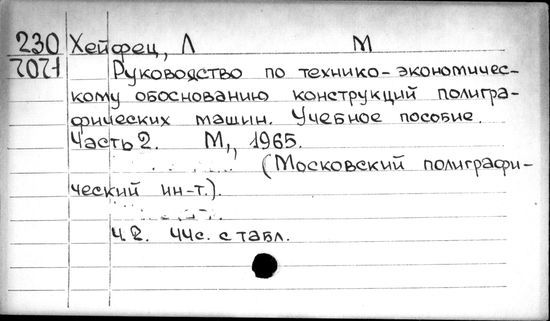 230 Хейфец, Л М
7071 Руководство по технико-экономичес-
кому обоснованию конструкций полигра-
фических машин. Учебное пособие.
Часть 2. М., 1965.
(Московский полиграфи-
ческий ин-т.).
Ч.2. 44с. с табл.